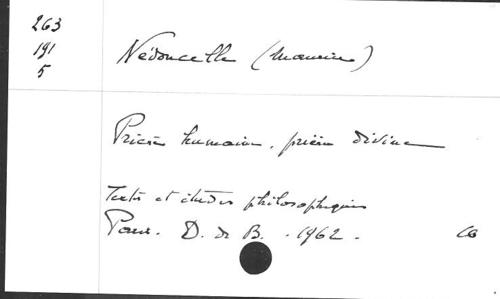 263
191
5
Nédoncelle (Maurice)
Prière humaine, prière divine
Textes et études philosophiques
Paris. D. de B. . 1962 .